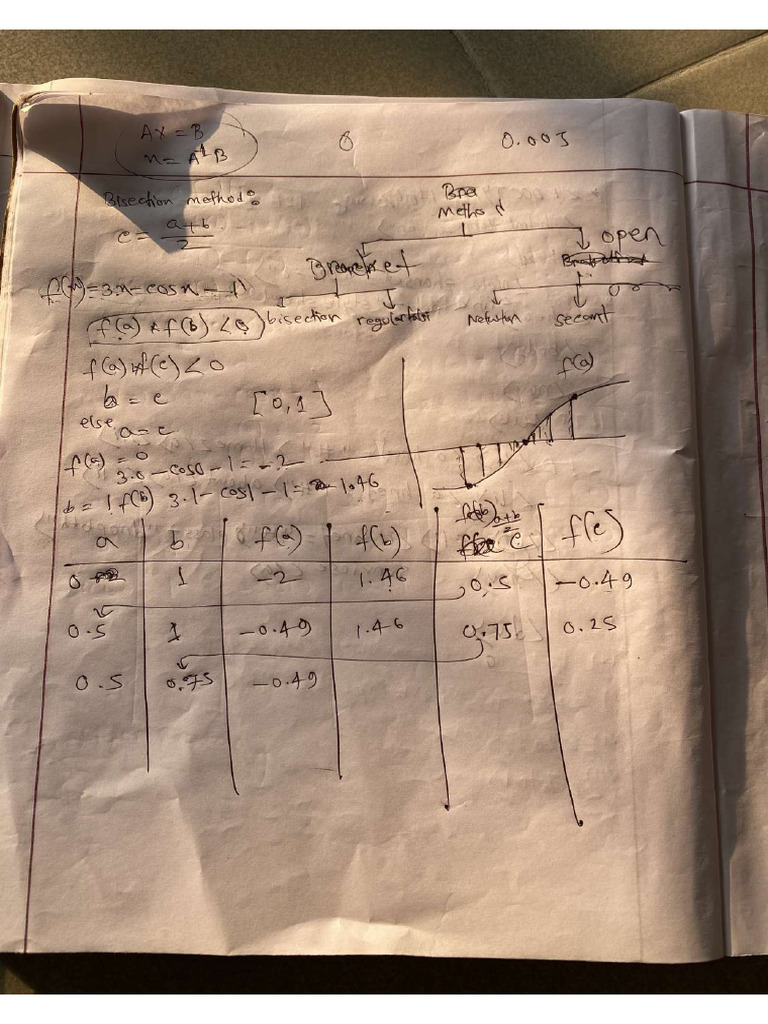 Ax = B
x = A⁻¹B
0.005
Bisection method:
c = a+b / 2
Method
Bracket
open
bisection
Newton
secant
f(x) = 3x - cosx - 1
f(a) * f(b) < 0
f(a) * f(c) < 0
b = c
else a = c
[0,1]
f(a)
f(a) = 0
3.0 - cos0 - 1 = -2
b = 1 f(b) 3.1 - cos1 - 1 = 1.46
a b f(a) f(b) a+b/2 c f(c)
0 1 -2 1.46 0.5 -0.49
0.5 1 -0.49 1.46 0.75 0.25
0.5 0.75 -0.49